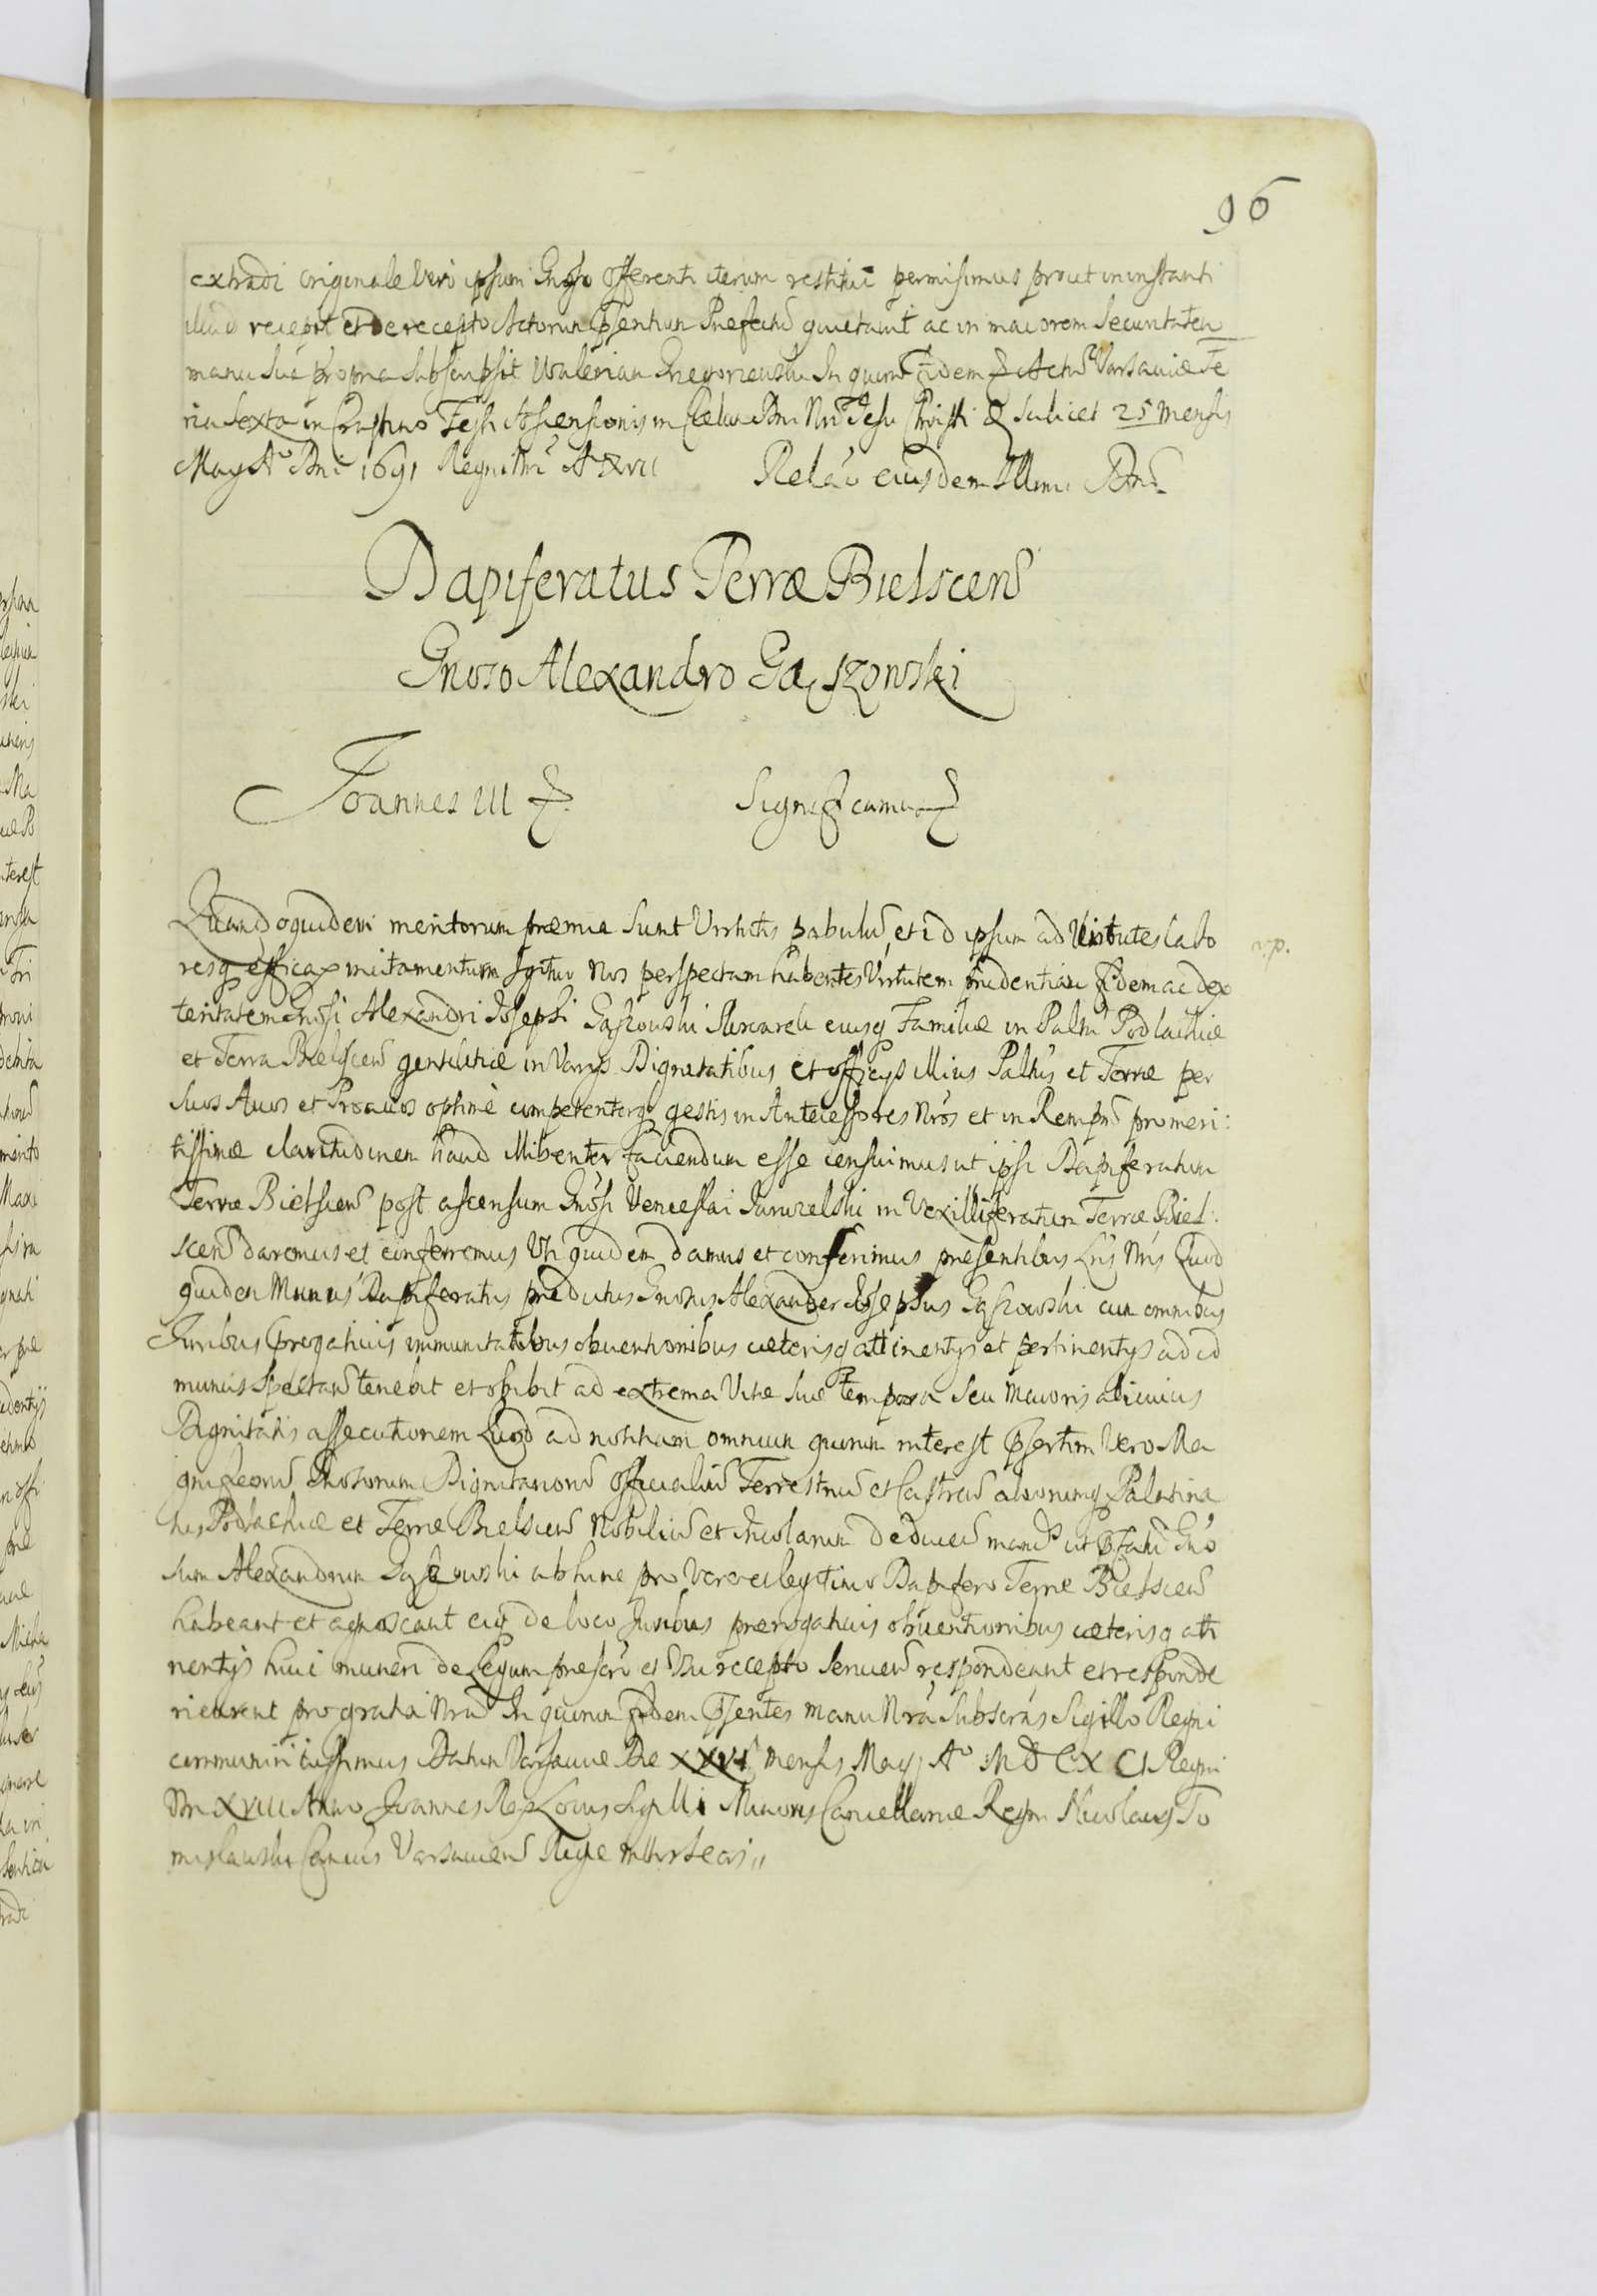 96
extradi originale vero ipsum Gnoso offerenti iterum restitui permisimus prout in instanti
illud recepit et de recepto Actorum psentium Prefectu quietavit ac in maiorem securitatem
manu sua propria subscripsit Walerian In quoru fidem & Actu Varsaviæ Fe
ria Sexta in Crastino Festi Ascensionis in Cælu Dni Nri Jesu Christi & scilicet 25 Mensis
May Ao Dni 1691 Regni Nri Ao XVII Relao eiusdem Illmi Dni
Dapiferatus Terræ Bielscens
Gnoso Alexandro Gąszowski
Joannes III &. Significamus &
Quandoquidem meritorum præmia sunt Virtutis pabulu, et id ipsum ad Virtutes labo
resq efficax incitamentum Igitur Nos perspectam habentes Virtutem prudentiam fidem ac dex
teritatem Gnosi Alexandri Josephi Gąszowski eiusq Familiæ in Paltu Podlachiæ
et Terra Bielscens gentilitiæ in Varijs Dignitatibus et officijs illius Paltus et Terræ per
suos Avos et Proavos optime competenterq gestis in Antecessores Nros et in Rempu promeri:
tissimæ claritudinem haud illibenter faciendum esse censuimus ut ipsi Dapiferatum
Terræ Bielscens post ascensum Gnosi Venceslai in Vexilliferatum Terræ Biel:
scens daremus et conferremus Uti quidem damus et conferimus presentibus Lris Nris Quod
quidem Munus Dapiferatus predictus Gnosus Alexander Josephus Gąszowski cum omnibus
Juribus prerogativis immunitatibus obventionibus ceterisq attinentijs et pertinentijs ad id
munus spectan tenebit et obibit ad extrema Vitæ suæ tempora seu maioris alicuius
Dignitatis assecutionem Quod ad notitiam omnium quorum interest psertim vero Ma
gnificoru Gnosorum Dignitarioru Officialiu Terrestriu et Castren aliorumq Palatina
tus Podlachiæ et Terræ Bielscens Nobiliu et Incolarum deducen mand ut pfatu Gno
sum Alexandrum Gąszowski abhinc pro vero et legitimo Dapifero Terræ Bielscens
habeant et agnoscant eiq de loco Juribus prerogativis obventionibus ceterisq atti
nentijs huic muneri de Legum prescro et Usu recepto servien respondeant et responde
ri curent pro gratia Nra In quorum fidem psentes manu Nra subscras Sigillo Regni
communiri iussimus Datum Varsaviæ Die XXVI mensis May Ao MDCXCI Regni
Nri XVIII Anno Joannes Rex Locus Sigilli Minoris Cancellariæ Regni Nicolaus To
misławski Cancus Varsavien Regiæ Mttis Secris //